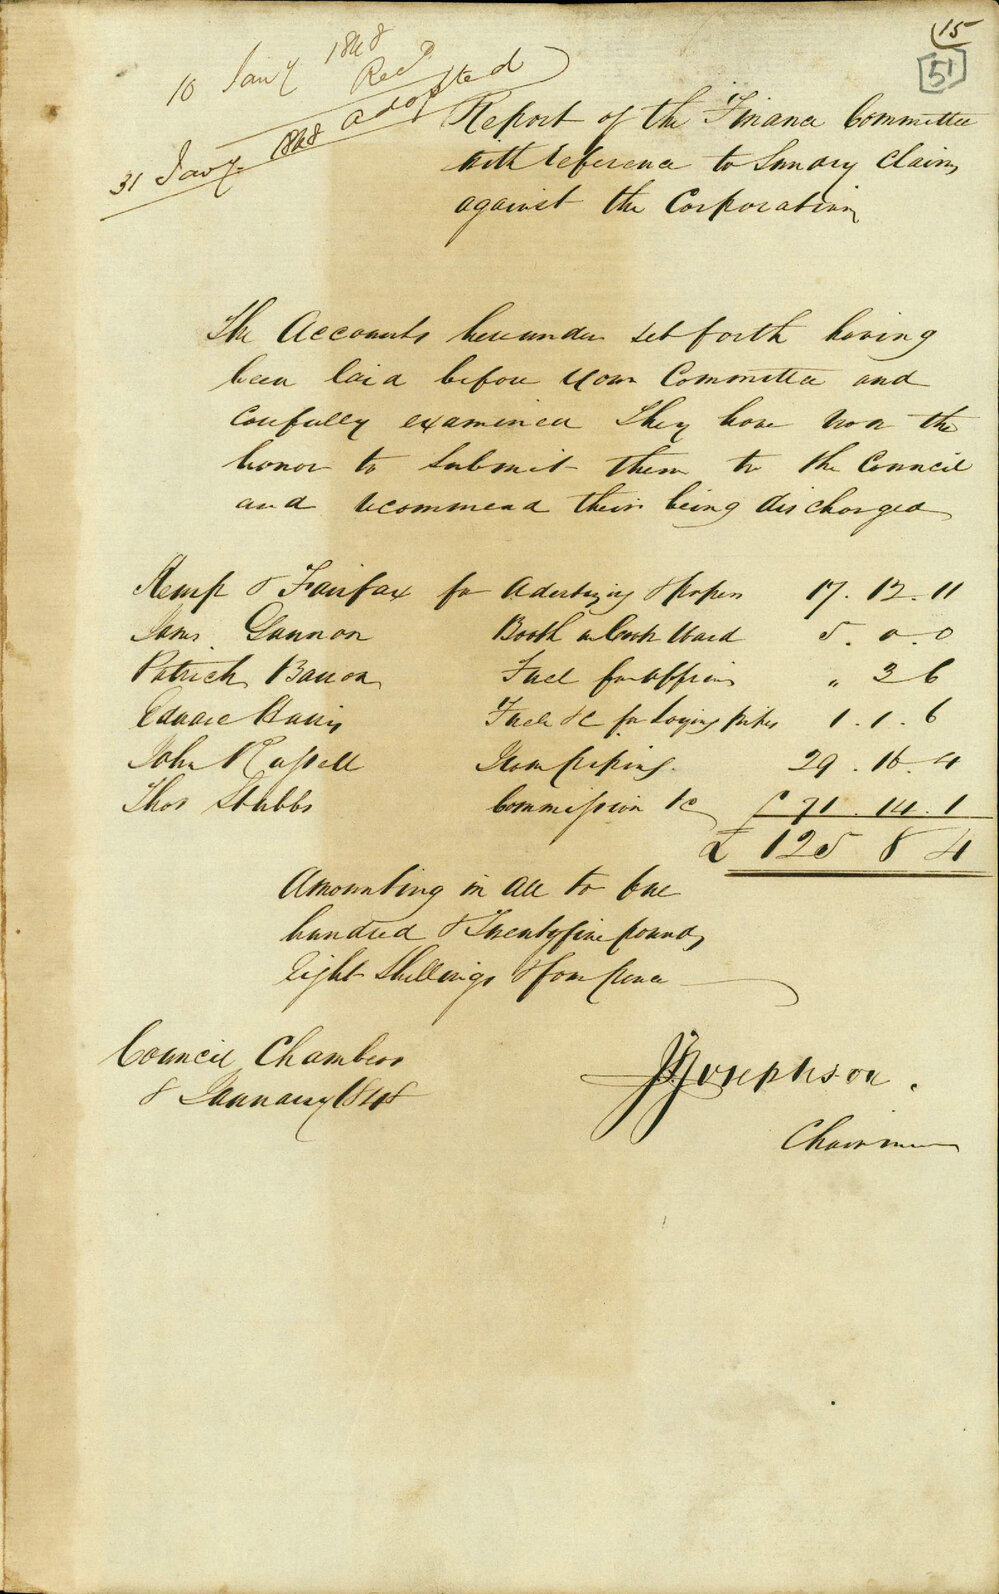 15
51
10 Jany 1848
Recd
31 Jany. 1848 adopted
Report of the Finance Committee
with reference to Sundry Claims
against the Corporation
The Accounts hereunder set forth having
been laid before your Committee and
carefully examined they have now the
honor to submit them to the Council
and recommend their being discharged
Kemp & Fairfax for Advertizing & papers 17. 12. 11
James Gannon Booth in Cook Ward 5. 0. 0
Patrick Barron Fuel for offices " 3 6
Edward Harris &c for Laying pipes 1. 1. 6
John Russell Iron piping. 29. 16. 4
Thos Stubbs Commission &c £ 71. 14. 1
£ 125 8 4
Amounting in all to One
hundred & Twentyfive pounds
Eight Shillings & four pence
Council Chambers
8 January 1848
J Josephson.
Chairman